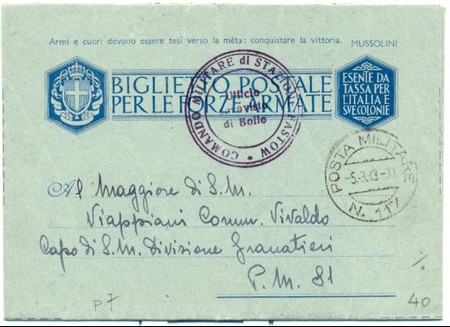 Armi e cuori devono essere tesi verso la mèta: conquistare la vittoria. MUSSOLINI
BIGLIETTO POSTALE
PER LE FORZE ARMATE
ESENTE DA
TASSA PER
L'ITALIA E
SVE COLONIE
COMANDO MILITARE di STAZIONE FASTOW
Ufficio
di Bollo
POSTA MILITARE
N. 117
Al Maggiore di S.M.
Viappiani Comm. Vivaldo
Capo di S.M. Divisione Granatieri
P.M. 81
P7
40